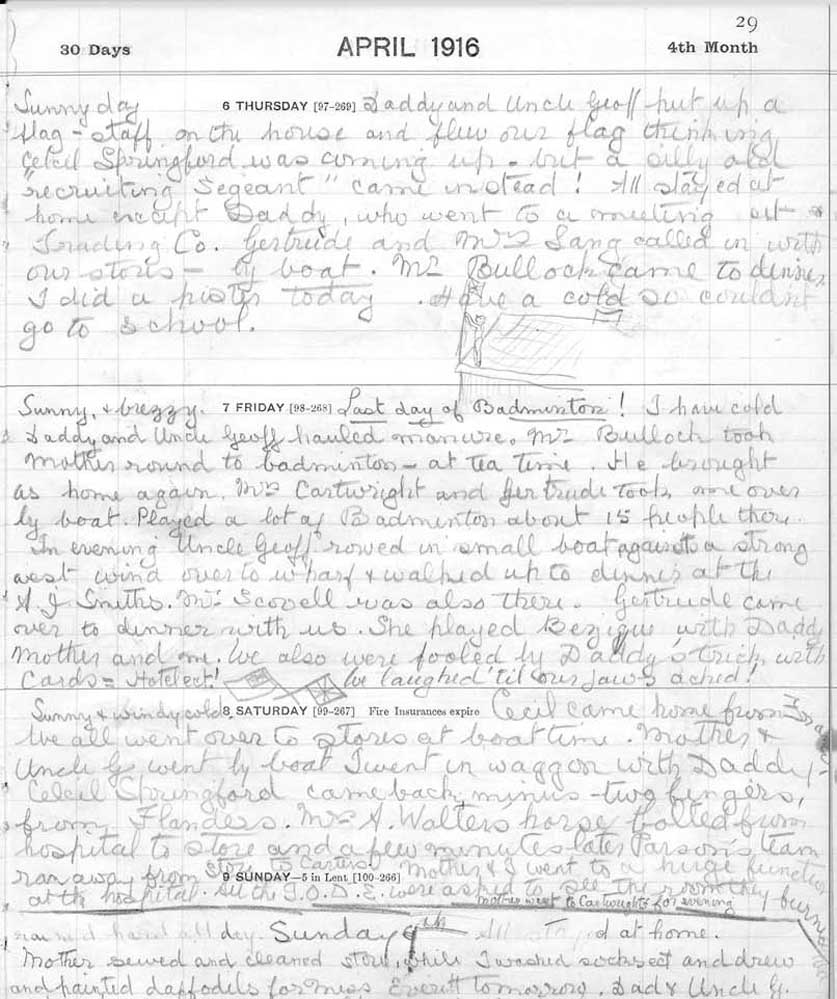 29
30 Days APRIL 1916 4th Month
Sunny day 6 THURSDAY [97-269] Daddy and Uncle Geoff put up a
flag-staff on the house and flew our flag thinking
Cecil Springford was coming up - but a silly old
"recruiting Segeant" came instead! All stayed at
home except Daddy, who went to a meeting at
Trading Co. Gertrude and Mrs Lang called in with
our stores - by boat. Mr Bullock came to dinner
I did a poster today. Have a cold so couldnt
go to school.
Sunny, & brezzy. 7 FRIDAY [98-268] Last day of Badminton! I have cold
Daddy and Uncle Geoff hauled manure. Mr Bullock took
Mother round to badminton - at tea time. He brought
us home again. Mrs Cartwright and Gertrude took me over
by boat. Played a lot of Badminton about 15 people there.
In evening Uncle Geoff rowed in small boat against a strong
west wind over to wharf & walked up to dinner at the
A J Smiths. Mr Scovell was also there. Gertrude came
over to dinner with us. She played Bezique with Daddy
Mother and me. We also were fooled by Daddy's trick with
Cards = Hotel ect! We laughed 'til our jaws ached!
Sunny & windy cold 8 SATURDAY [99-267] Fire Insurances expire Cecil came home from
We all went over to stores at boat time. Mother &
Uncle G went by boat I went in waggon with Daddy,-
Cecil Springford came back minus - two fingers,
from Flanders. Mrs A. Walters horse bolted from
hospital to store and a few minutes later Parson's team
ran away from store to Carters. Mother & I went to a huge function
9 SUNDAY—5 in Lent [100-266]
at the hospital. All the I.O.D.E. were asked to see the room they
Mother went to Cartwrights for evening
hard all day. Sunday 9th All stayed at home.
Mother sewed and cleaned stove, while I washed socks ect and drew
and painted daffodils for Miss Everett tomorrow. Dad & Uncle G.